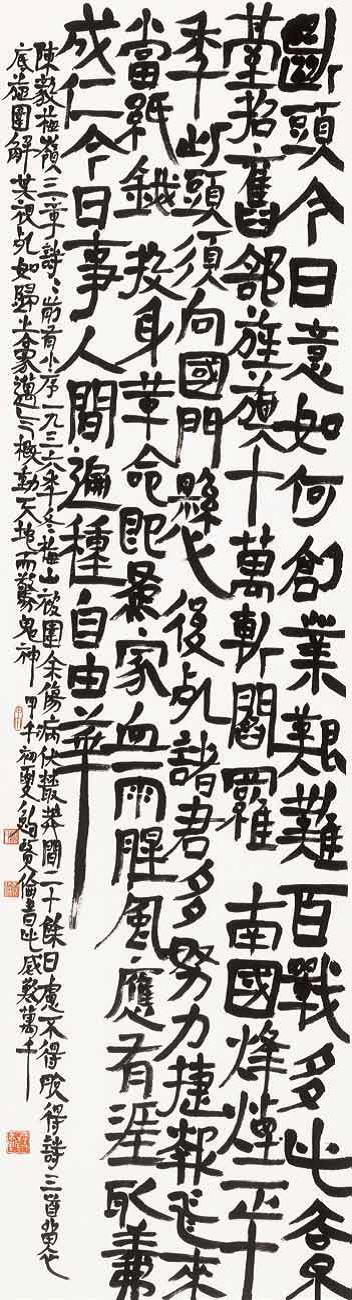 斷頭今日意如何創業艱難百戰多此去泉
臺招舊部旌旗十萬斬閻羅 南國烽煙正十
年此頭須向國門懸後死諸君多努力捷報飛來
當紙錢 投身革命即爲家血雨腥風應有涯取義
成仁今日事人間遍種自由華
陳毅梅嶺三章詩詩前有小序一九三六年冬梅山被圍余傷病伏叢莽間二十餘日慮不得脫得詩三首留衣
底旋圍解 其視死如歸之象 動天地而驚鬼神 甲午初夏 書此感慨萬千